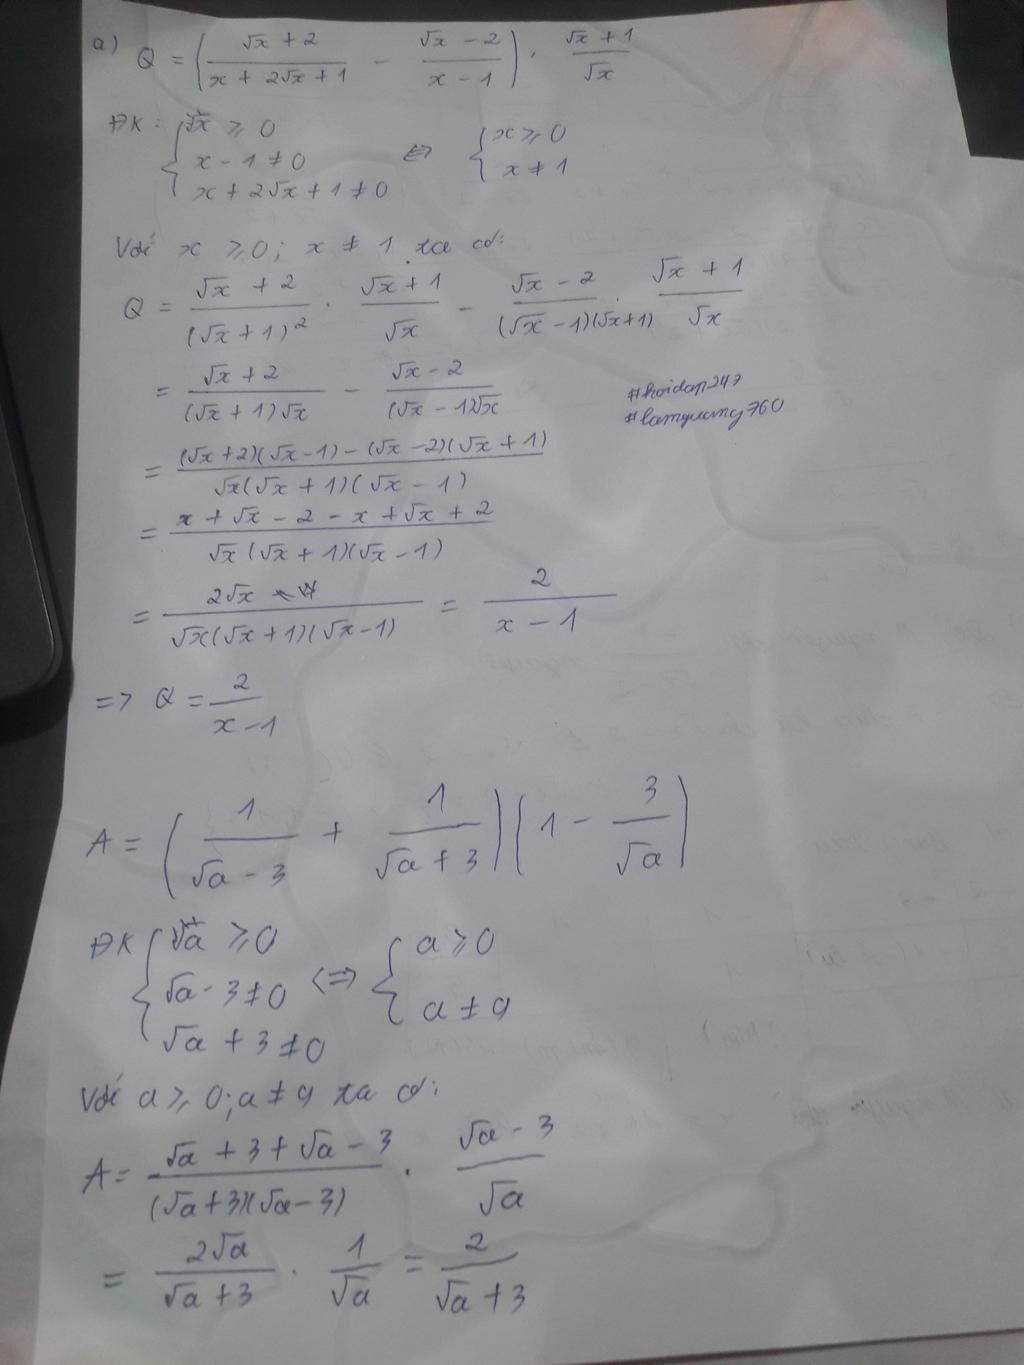 a) Q = ( (√x + 2)/(x + 2√x + 1) - (√x - 2)/(x - 1) ) . (√x + 1)/√x
ĐK: { √x ≥ 0
x - 1 ≠ 0 ⇔ { x ≥ 0
x + 2√x + 1 ≠ 0 x ≠ 1
Với x ≥ 0; x ≠ 1 ta có:
Q = (√x + 2)/(√x + 1)² . (√x + 1)/√x - (√x - 2)/((√x - 1)(√x + 1)) . (√x + 1)/√x
= (√x + 2)/((√x + 1)√x) - (√x - 2)/((√x - 1)√x
#hoidap247
#lamquang760
= ((√x + 2)(√x - 1) - (√x - 2)(√x + 1))/(√x(√x + 1)(√x - 1))
= (x + √x - 2 - x + √x + 2)/(√x(√x + 1)(√x - 1))
= 2√x/(√x(√x + 1)(√x - 1)) = 2/(x - 1)
=> Q = 2/(x - 1)
A = ( 1/(√a - 3) + 1/(√a + 3) ) ( 1 - 3/√a )
ĐK { √a ≥ 0
√a - 3 ≠ 0 <=> { a ≥ 0
√a + 3 ≠ 0 a ≠ 9
Với a ≥ 0; a ≠ 9 ta có:
A = (√a + 3 + √a - 3)/((√a + 3)(√a - 3)) . (√a - 3)/√a
= 2√a/(√a + 3) . 1/√a = 2/(√a + 3)